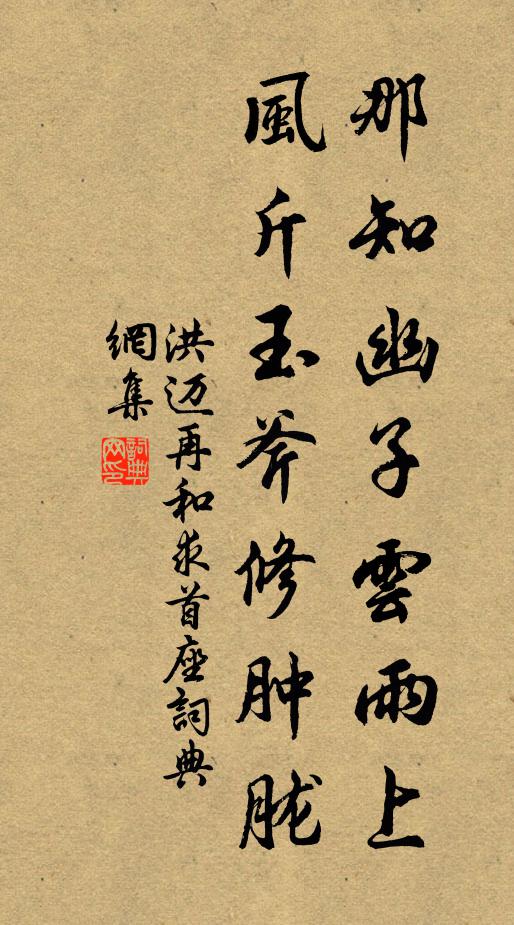 那知幽子雲雨上
風斤玉斧修肿胧
洪迈再和求首座詞典
網集
詞典網印